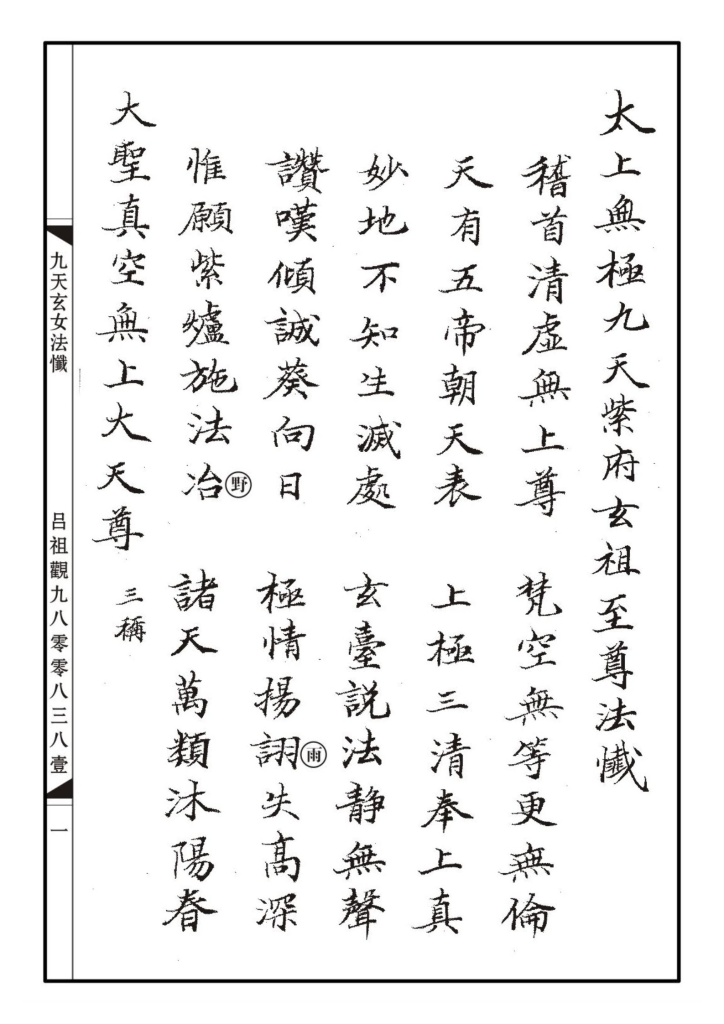 太上無極九天紫府玄祖至尊法懺
稽首清虛無上尊　梵空無等更無倫
天有五帝朝天表　上極三清奉上真
妙地不知生滅處　玄臺説法靜無聲
讚嘆傾誠葵向日　極情揚詡㊀雨失高深
惟願紫爐施法冶野　諸天萬類沐陽春
大聖真空無上大天尊　三稱
九天玄女法懺
吕祖觀九八零零八三八壹
一